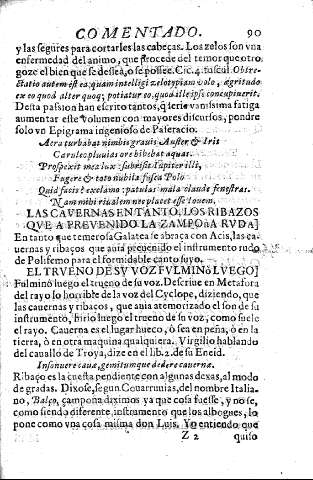 COMENTADO. 90
y las segures para cortarles las cabeças. Los zelos son vna
enfermedad del animo, que procede del temor que otro
goze el bien que se dessea, o se possee. Cic. 4. tuscul. Obtre-
ctatio autem est ea, quam intelligi zelotypiam volo, ægritudo
ex eo quod alter quoq; potiatur eo, quod ille ipse concupiuerit.
Desta passion han escrito tantos, q̃ serie vanissima fatiga
aumentar este volumen con mayores discursos, pondre
solo vn Epigrama ingenioso de Paseracio.
Aera turbabat nimbis grauis Auster & Iris
Caruleo pluuias ore bibebat aquas.
Prospexit mea lux subrisit Iupiter illi,
Fugere & toto nubila fusca Polo
Quid facis? exclamo: patulas mala claude fenestras.
Nam mihi riualem nec placet esse Iouem.
LAS CAVERNAS EN TANTO, LOS RIBAZOS
QUE A PREVENIDO LA ZAMPOñA RVDA]
En tanto que temerosa Galatea se abraca con Acis, las ca-
uernas y ribaços que auia preuenido el instrumento rudo
de Polifemo para el formidable canto suyo.
EL TRVENO DE SV VOZ FVLMINò LVEGO]
Fulminò luego el trueno de su voz. Descriue en Metafora
del rayo lo horrible de la voz del Cyclope, diziendo, que
las cauernas y ribaços, que auia atemorizado el son de su
instrumento, hirio luego el trueno de su voz, como suele
el rayo. Cauerna es el lugar hueco, ò sea en peña, ò en la
tierra, ò en otra machina qualquiera. Virgilio hablando
del cauallo de Troya, dize en el lib. 2. de su Eneid.
Insonuere cauæ, gemitumque dedere cauernæ.
Ribaço es la cuesta pendiente con algunas dexas, al modo
de gradas. Dixose, segun Couarruuias, del nombre Italia-
no, Balço, çampoña diximos ya que cosa fuesse, y no se,
como siendo diferente instrumento que los albogues, lo
pone como vna cosa misma don Luis. Yo entiendo que
Z 2 quiso